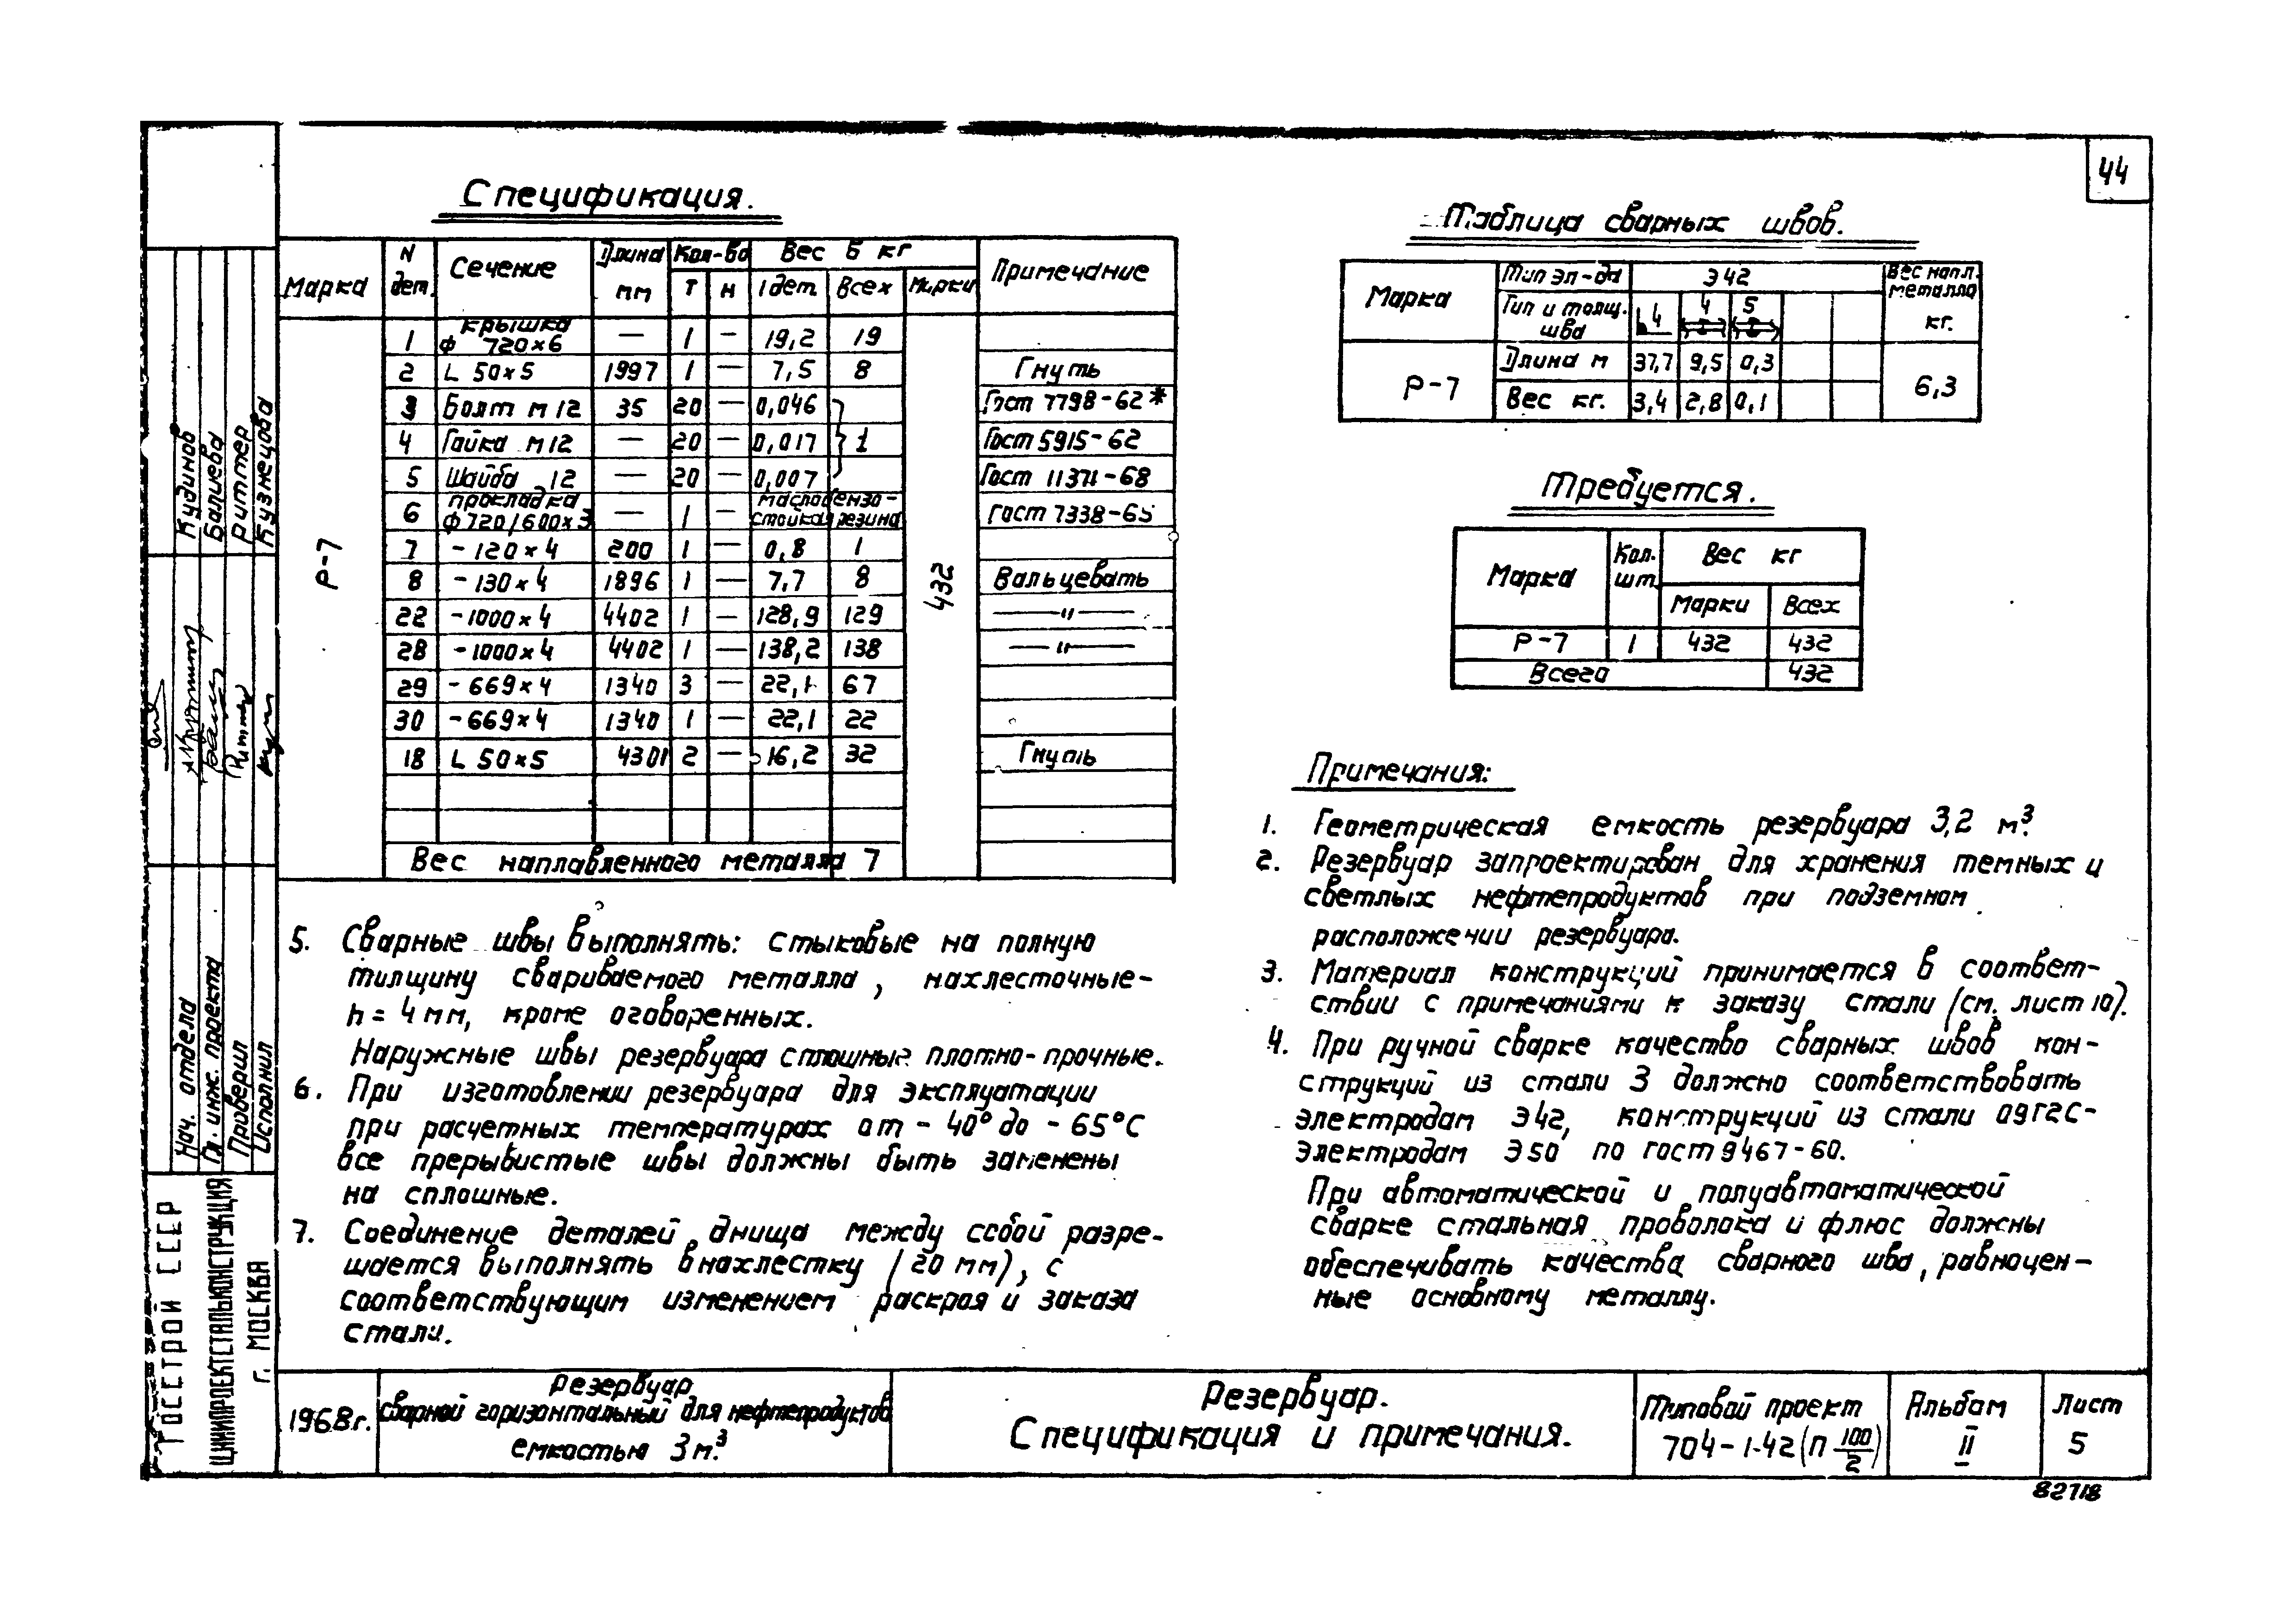 44
Спецификация.
Марка N дет. Сечение Длина мм Кол-во Вес в кг Примечание
Т Н 1 дет. Всех Марки
Р-7 432
1 Крышка ф 720×6 — 1 — 19,2 19
2 L 50×5 1997 1 — 7,5 8 Гнуть
3 Болт м 12 35 20 — 0,046 Гост 7798-62*
4 Гайка м 12 — 20 — 0,017 1 Гост 5915-62
5 Шайба 12 — 20 — 0,007 Гост 11371-68
6 прокладка ф 720/600×3 — 1 — маслобензо-стойкая резина Гост 7338-65
7 - 120×4 200 1 — 0,8 1
8 - 130×4 1896 1 — 7,7 8 Вальцевать
22 - 1000×4 4402 1 — 128,9 129 —"—
28 - 1000×4 4402 1 — 138,2 138 —"—
29 - 669×4 1340 3 — 22,1 67
30 - 669×4 1340 1 — 22,1 22
18 L 50×5 4301 2 — 16,2 32 Гнуть
Вес наплавленного металла 7
Таблица сварных швов.
Марка Тип эл-да Э42 Вес напл. металла кг.
Тип и толщ. шва 4 4 5
Р-7 Длина м 37,7 9,5 0,3 6,3
Вес кг. 3,4 2,8 0,1
Требуется.
Марка Кол. шт. Вес кг
Марки Всех
Р-7 1 432 432
Всего 432
Примечания:
1. Геометрическая емкость резервуара 3,2 м³.
2. Резервуар запроектирован для хранения темных и
светлых нефтепродуктов при подземном
расположении резервуара.
3. Материал конструкций принимается в соответ-
ствии с примечаниями к заказу стали (см. лист 10).
4. При ручной сварке качество сварных швов кон-
струкций из стали 3 должно соответствовать
электродам Э42, конструкций из стали 09Г2С-
электродам Э50 по гост 9467-60.
При автоматической и полуавтоматической
сварке стальная проволока и флюс должны
обеспечивать качества сварного шва, равноцен-
ные основному металлу.
5. Сварные швы выполнять: стыковые на полную
толщину свариваемого металла, нахлесточные-
h = 4 мм, кроме оговоренных.
Наружные швы резервуара сплошные плотно-прочные.
6. При изготовлении резервуара для эксплуатации
при расчетных температурах от - 40° до - 65°С
все прерывистые швы должны быть заменены
на сплошные.
7. Соединение деталей днища между собой разре-
шается выполнять внахлестку (20 мм), с
соответствующим изменением раскроя и заказа
стали.
Кудинов
Балиева
Риттер
Кузнецова
Нач. отдела
Гл. инж. проекта
Проверил
Исполнил
ГОССТРОЙ СССР
ЦНИИПРОЕКТСТАЛЬКОНСТРУКЦИЯ
г. МОСКВА
1968г.
Резервуар
сварной горизонтальный для нефтепродуктов
емкостью 3м³.
Резервуар.
Спецификация и примечания.
Типовой проект
704-1-42 (П 100/2)
Альбом
II
Лист
5
82718